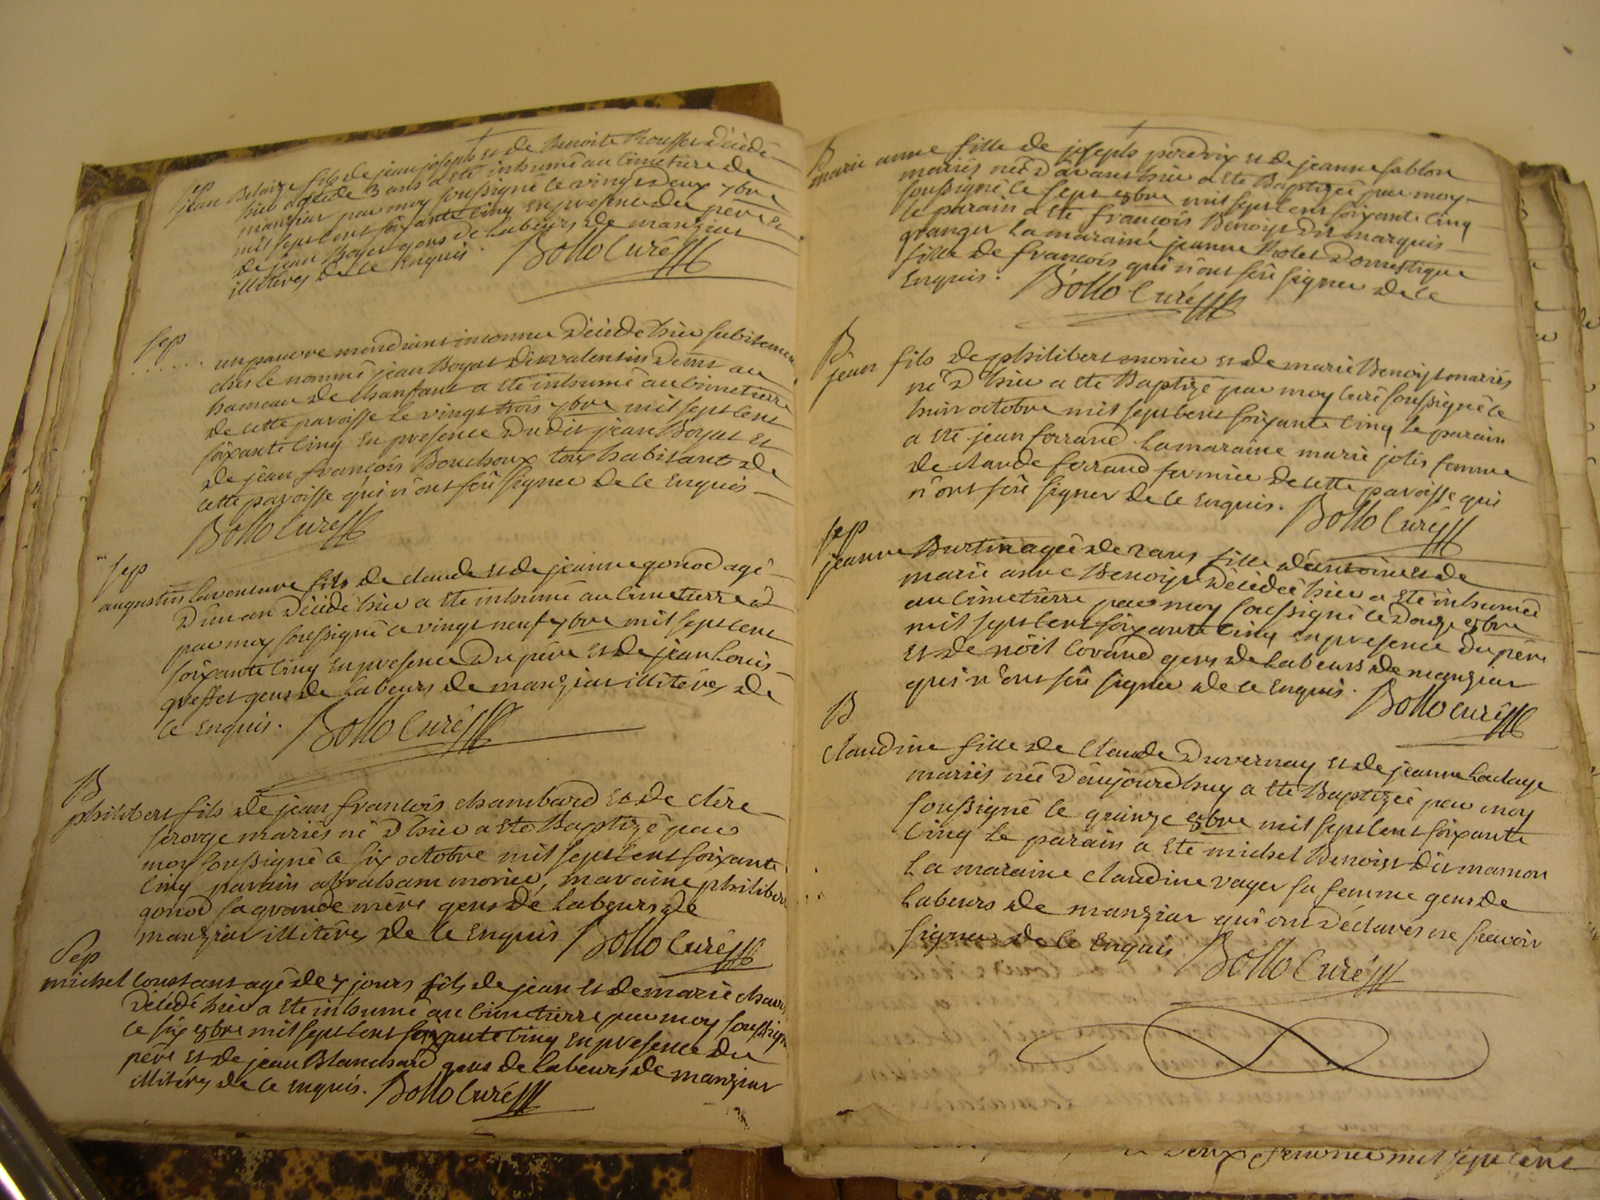 Sep
jean Blaize fils de jean joseph et de Benoite Rousset décédé
hier agé de 3 ans a été inhumé au Cimetiere de
manziat par moy soussigné le vingt deux 7bre
mil sept cent soixante Cinq en presence du père et
de jean Boyat gens de Labeurs de manziat
illiteres de ce Enquis. Bollo Curé
Sep
un pauvre mendiant inconnu décédé hier subitement
chés le nommé jean Boyat dit valentin demt au
hameau de Chanfant a été inhumé au Cimetierre
de cette paroisse le vingt trois 7bre mil sept Cent
soixante Cinq En presence dudit jean Boyat et
de jean françois Bouchoux tous habitants de
cette paroisse qui n'ont sçû signer de ce Enquis
Bollo Curé
Sep
augustin laventure fils de claude et de jeanne gonod agé
d'un an décédé hier a été inhumé au Cimetierre
par moy soussigné le vingt neuf 7bre mil sept cent
soixante Cinq En presence du père et de jean Louis
greffet gens de Labeurs de manziat illiteres de
Ce Enquis. Bollo Curé
B
philibert fils de jean françois chambard et de clere
feroge mariés né d'hier a été Baptizé par
moy soussigné le six octobre mil sept Cent soixante
Cinq parain abraham morier, maraine philiberte
gonod sa grande mère gens de Labeurs de
manziat illiteres de ce Enquis Bollo Curé
Sep
michel Constant agé de 7 jours fils de jean et de marie
décédé hier a été inhumé au Cimetierre par moy soussigné
le six 8bre mil sept Cent soixante Cinq En presence du
père et de jean Blanchard gens de Labeurs de manziat
illiteres de ce Enquis. Bollo Curé
B
marie anne fille de joseph perdrix et de jeanne sablon
mariés née d'avant hier a été Baptizée par moy
soussigné le sept 8bre mil sept Cent soixante Cinq
le parain a été francois Benoist dit marquis
granger la maraine jeanne Violet domestique
fille de francois qui n'ont sçû signer de ce
Enquis. Bollo Curé
B
jean fils de philibert morier et de marie Benoist mariés
né d'hier a été Baptizé par moy Curé soussigné le
huit octobre mil sept Cent soixante Cinq le parain
a été jean ferrand la maraine marie jolis femme
de claude ferrand fermier de cette paroisse qui
n'ont sçû signer de ce Enquis. Bollo Curé
Sep
jeanne Burtin agée de 2 ans fille d'antoine et de
marie anne Benoist décédée hier a été inhumée
au Cimetierre par moy soussigné le douze 8bre
mil sept Cent soixante Cinq En presence du père
et de noël Lorand gens de Labeurs de manziat
qui n'ont sçû signer de ce Enquis. Bollo Curé
B
Claudine fille de Claude duvernay et de jeanne
mariés née d'aujourdhuy a été Baptizée par moy
soussigné le quinze 8bre mil sept Cent soixante
Cinq le parain a été michel Benoist dit mamon
La maraine Claudine vayer sa femme gens de
Labeurs de manziat qui ont déclarés ne sçavoir
signer de ce Enquis Bollo Curé
mil sept cent